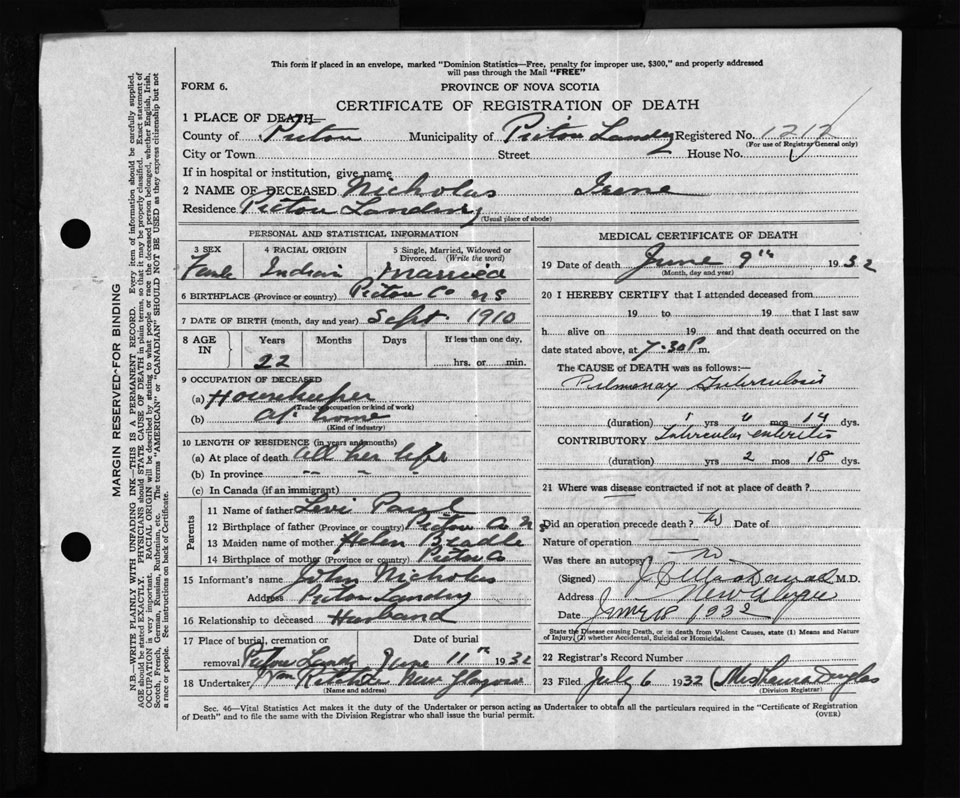 This form if placed in an envelope, marked "Dominion Statistics—Free, penalty for improper use, $300," and properly addressed
will pass through the Mail "FREE"
FORM 6.
PROVINCE OF NOVA SCOTIA
CERTIFICATE OF REGISTRATION OF DEATH
1 PLACE OF DEATH—
County of Pictou Municipality of Pictou Landing Registered No. 1212
(For use of Registrar General only)
City or Town Street House No.
If in hospital or institution, give name
2 NAME OF DECEASED Nicholas Irene
Residence Pictou Landing
(Usual place of abode)
PERSONAL AND STATISTICAL INFORMATION
3 SEX 4 RACIAL ORIGIN 5 Single, Married, Widowed or Divorced. (Write the word)
Female Indian Married
6 BIRTHPLACE (Province or country) Pictou Co NS
7 DATE OF BIRTH (month, day and year) Sept 1910
8 AGE IN Years Months Days If less than one day,
22 hrs. or min.
9 OCCUPATION OF DECEASED
(a) Housekeeper
(Trade or occupation or kind of work)
(b) at home
(Kind of industry)
10 LENGTH OF RESIDENCE (in years and months)
(a) At place of death all her life
(b) In province " " "
(c) In Canada (if an immigrant)
Parents
11 Name of father Levi Paul
12 Birthplace of father (Province or country) Pictou Co NS
13 Maiden name of mother Helen Beadle
14 Birthplace of mother (Province or country) Pictou Co
15 Informant's name John Nicholas
Address Pictou Landing
16 Relationship to deceased Husband
17 Place of burial, cremation or removal Pictou Landg Date of burial June 11th 1932
18 Undertaker, New Glasgow
(Name and address)
MEDICAL CERTIFICATE OF DEATH
19 Date of death June 9th 1932
(Month, day and year)
20 I HEREBY CERTIFY that I attended deceased from
19 to 19 that I last saw
h alive on 19 and that death occurred on the
date stated above, at 7-30 P m.
The CAUSE of DEATH was as follows:—
Pulmonary Tuberculosis
(duration) yrs mos 14 dys.
CONTRIBUTORY Tubercular enteritis
(duration) yrs 2 mos 18 dys.
21 Where was disease contracted if not at place of death?
Did an operation precede death? No Date of
Nature of operation
Was there an autopsy No
(Signed) MacDonald M.D.
Address New Glasgow
Date June 18 1932
State the Disease causing Death, or in death from Violent Causes, state (1) Means and Nature of Injury, (2) whether Accidental, Suicidal or Homicidal.
22 Registrar's Record Number
23 Filed July 6 1932 (Mrs Douglas
(Division Registrar)
Sec. 46—Vital Statistics Act makes it the duty of the Undertaker or person acting as Undertaker to obtain all the particulars required in the "Certificate of Registration
of Death" and to file the same with the Division Registrar who shall issue the burial permit. (OVER)
MARGIN RESERVED—FOR BINDING
N.B.—WRITE PLAINLY WITH UNFADING INK—THIS IS A PERMANENT RECORD. Every item of information should be carefully supplied.
AGE should be stated EXACTLY. PHYSICIANS should STATE CAUSE OF DEATH in plain terms, so that it may be properly classified. Exact statement of
OCCUPATION is very important. RACIAL ORIGIN will be described by stating to what people or race the deceased person belonged, whether English, Irish,
Scotch, French, German, Russian, Ruthenian, etc. The terms "AMERICAN" or "CANADIAN" SHOULD NOT BE USED as they express citizenship but not
a race or people. See instructions on back of Certificate.